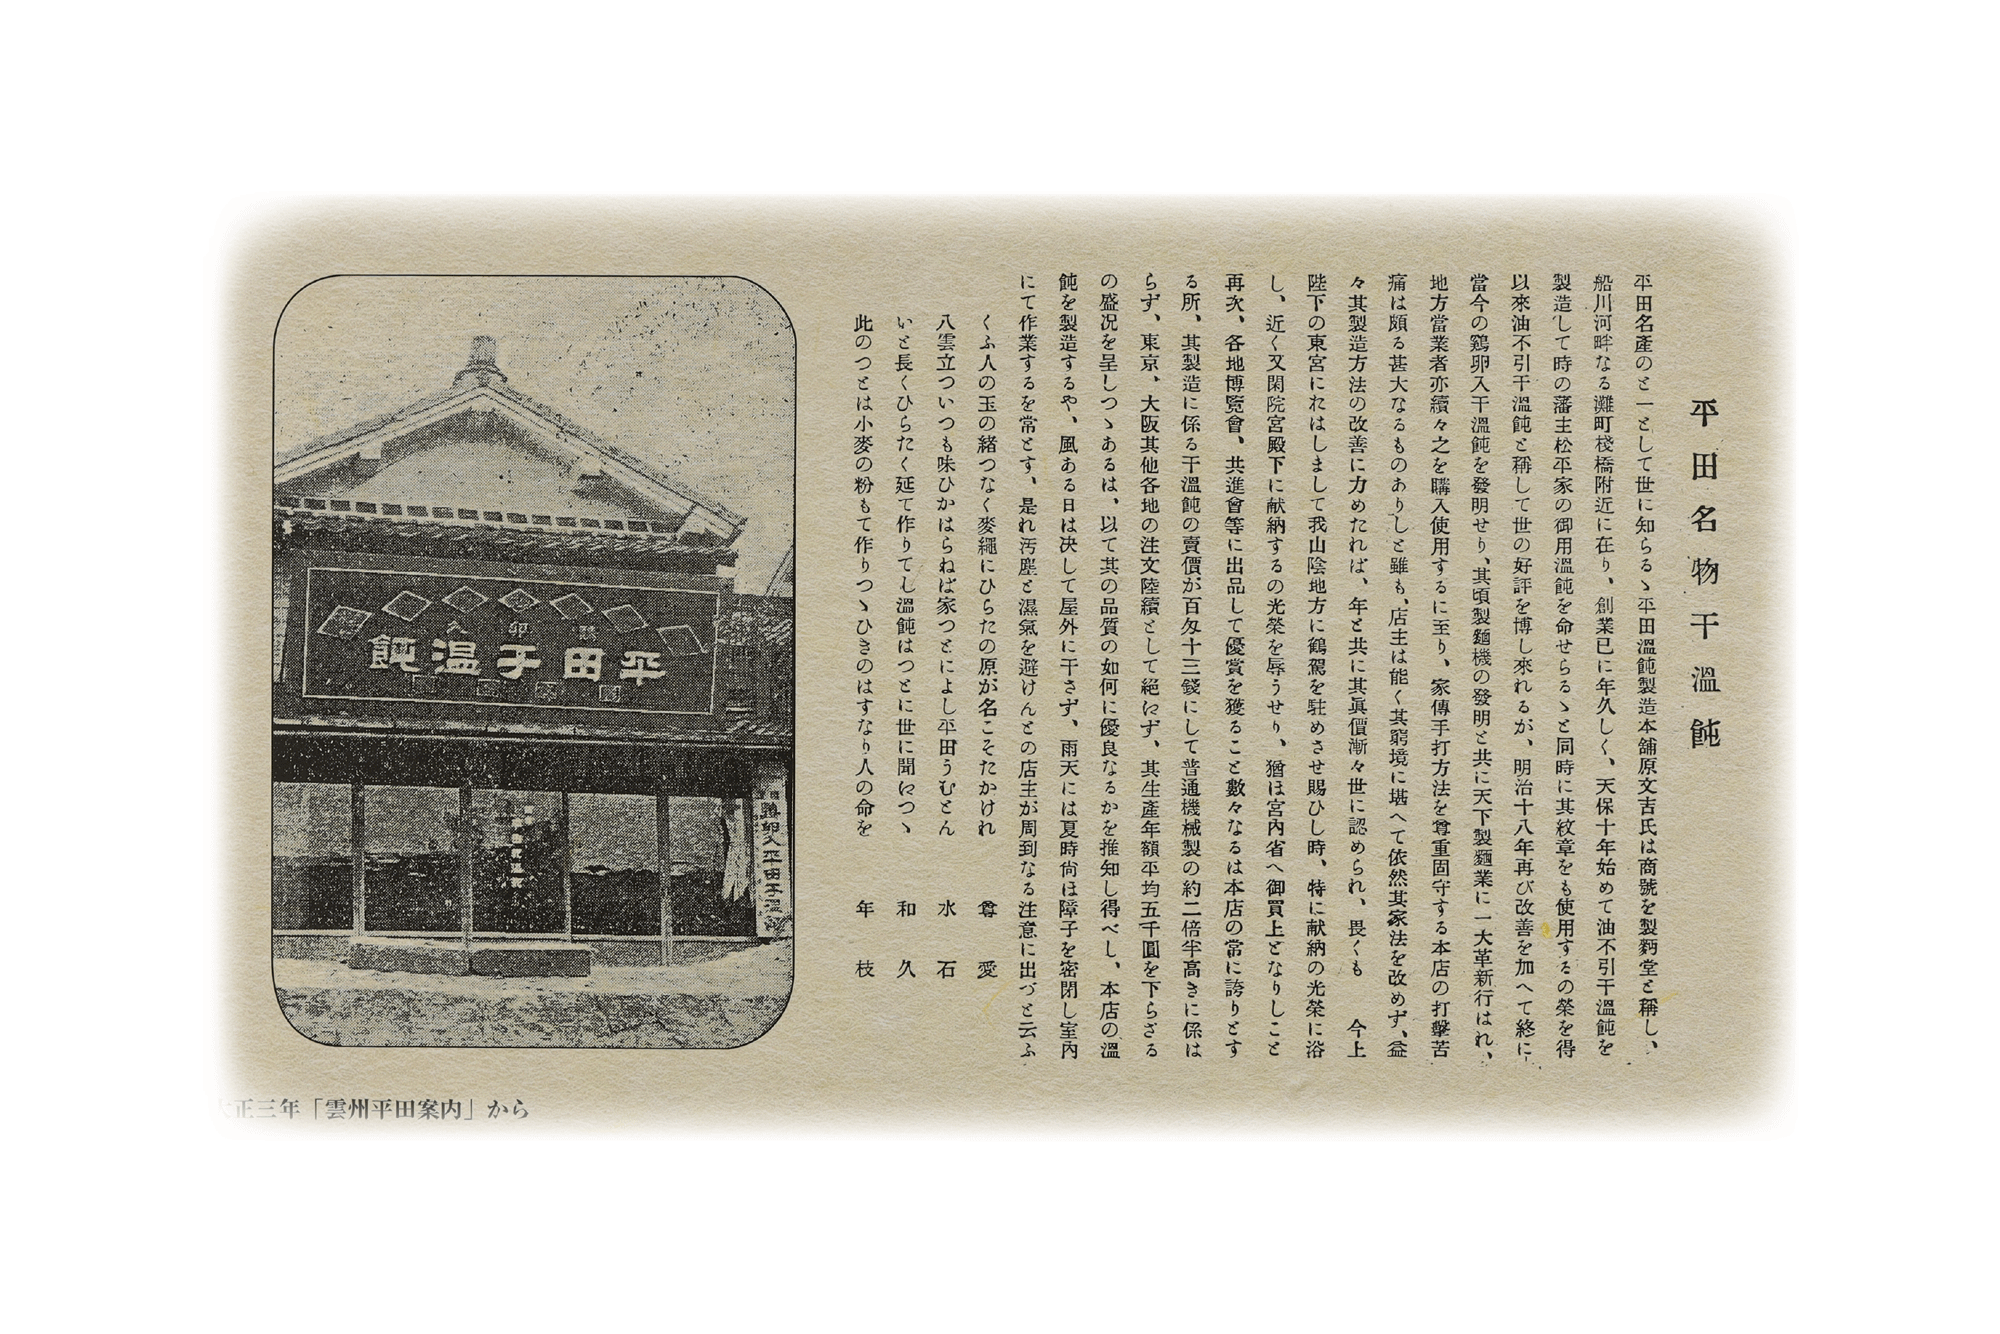 平田名物干溫飩
平田名產のと一として世に知らるヽ平田溫飩製造本舖原文吉氏は商號を製麪堂と稱し、
船川河畔なる灘町棧橋附近に在り、創業已に年久しく、天保十年始めて油不引干溫飩を
製造して時の藩主松平家の御用溫飩を命せらるヽと同時に其紋章をも使用するの榮を得
以來油不引干溫飩と稱して世の好評を博し來れるが、明治十八年再び改善を加へて終に
當今の鷄卵入干溫飩を發明せり、其頃製麵機の發明と共に天下製麵業に一大革新行はれ、
地方當業者亦續々之を購入使用するに至り、家傳手打方法を尊重固守する本店の打擊苦
痛は頗る甚大なるものありしと雖も、店主は能く其窮境に堪へて依然其家法を改めず、益
々其製造方法の改善に力めたれば、年と共に其眞價漸々世に認められ、畏くも　今上
陛下の東宮にれはしまして我山陰地方に鶴駕を駐めさせ賜ひし時、特に献納の光榮に浴
し、近く又閑院宮殿下に献納するの光榮を辱うせり、猶ほ宮內省へ御買上となりしこと
再次、各地博覽會、共進會等に出品して優賞を獲ること數々なるは本店の常に誇りとす
る所、其製造に係る干溫飩の賣價が百匁十三錢にして普通機械製の約二倍半高きに係は
らず、東京、大阪其他各地の注文陸續として絕ͅにず、其生產年額平均五千圓を下らざる
の盛況を呈しつヽあるは、以て其の品質の如何に優良なるかを推知し得べし、本店の溫
飩を製造するや、風ある日は決して屋外に干さず、雨天には夏時尙ほ障子を密閉し室內
にて作業するを常とす、是れ汚塵と濕氣を避けんとの店主が周到なる注意に出づと云ふ
くふ人の玉の緖つなく麥繩にひらたの原が名こそたかけれ　尊愛
八雲立ついつも味ひかはらねば家つとによし平田うむとん　水石
いと長くひらたく延て作りてし溫飩はつとに世に聞につヽ　和久
此のつとは小麥の粉もて作りつヽひきのはすなり人の命を　年枝
鷄卵入
平田干溫飩
鷄卵入平田干溫
正三年「雲州平田案内」から